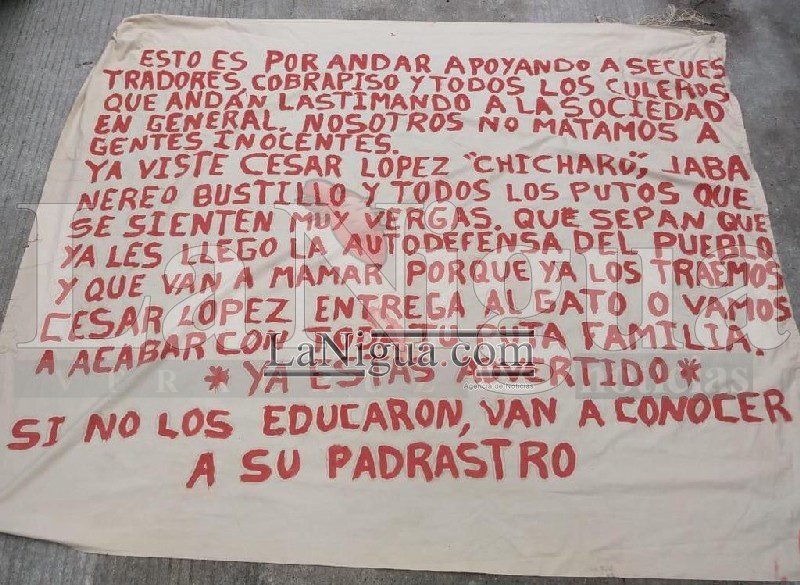 ESTO ES POR ANDAR APOYANDO A SECUES
TRADORES, COBRAPISO Y TODOS LOS CULEROS
QUE ANDAN LASTIMANDO A LA SOCIEDAD
EN GENERAL. NOSOTROS NO MATAMOS A
GENTES INOCENTES.
YA VISTE CESAR LOPEZ "CHICHARO", JABA
NEREO BUSTILLO Y TODOS LOS PUTOS QUE
SE SIENTEN MUY VERGAS. QUE SEPAN QUE
YA LES LLEGO LA AUTODEFENSA DEL PUEBLO
Y QUE VAN A MAMAR PORQUE YA LOS TRAEMOS
CESAR LOPEZ ENTREGA AL GATO O VAMOS
A ACABAR CON TODA TU PUTA FAMILIA.
LaNigua.com
Agencia de Noticias
* YA ESTAS ADVERTIDO *
noticias
SI NO LOS EDUCARON, VAN A CONOCER
A SU PADRASTRO
La Nigua